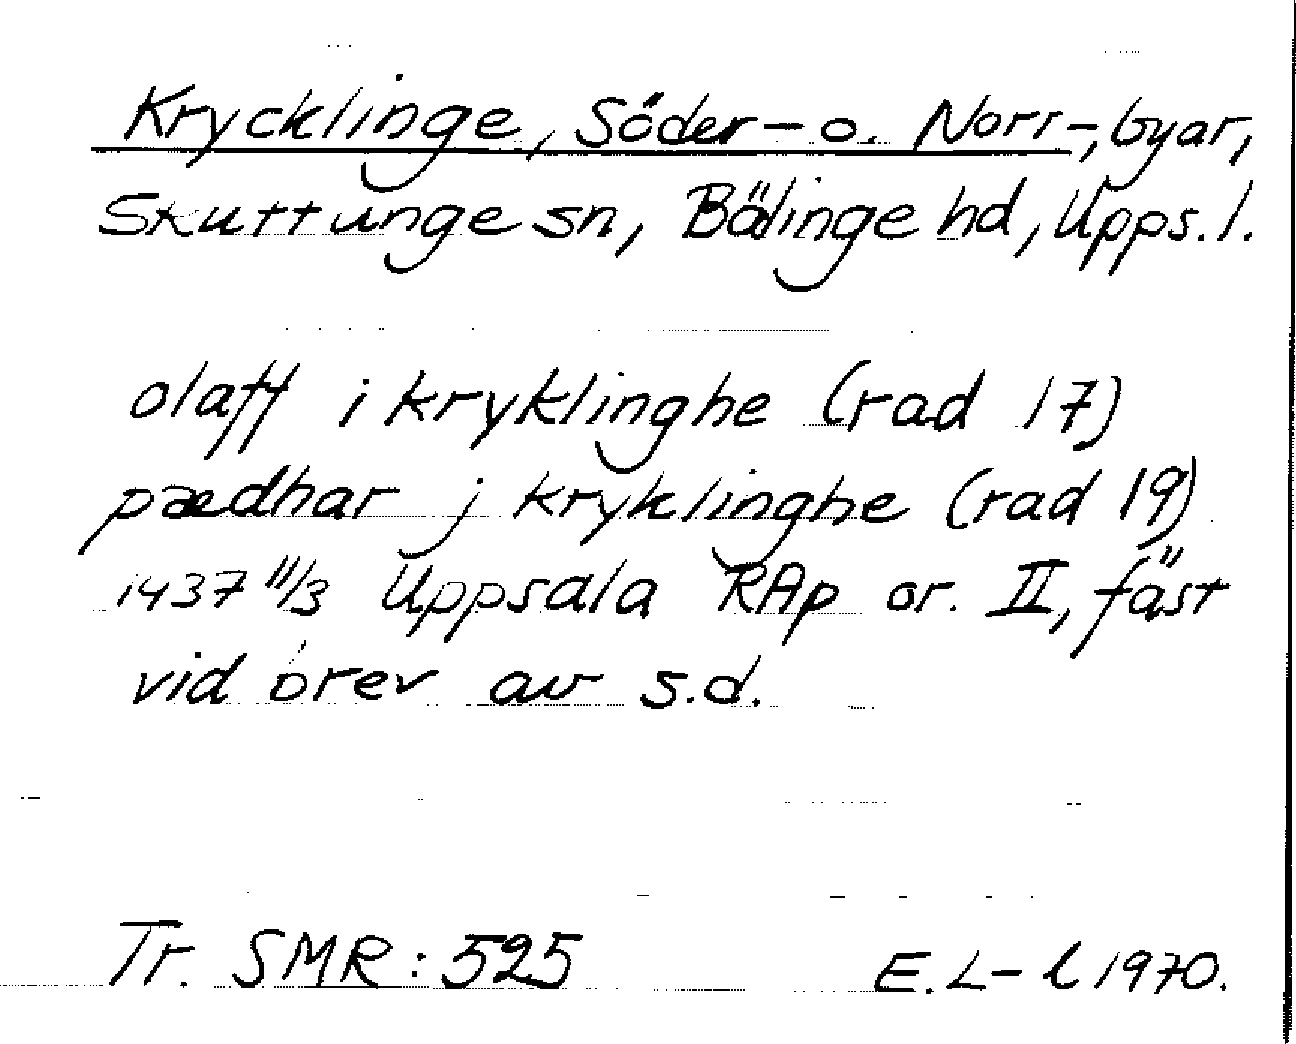 Krycklinge, Söder- o. Norr-, byar,
Skuttunge sn, Bälinge hd, Upps. l.
olaff i kryklinghe (rad 17)
pædhar j kryklinghe (rad 19)
1437 11/3 Uppsala RAp or. II, fäst
vid brev av s.d.
Tr. SMR: 525 E. L-l 1970.